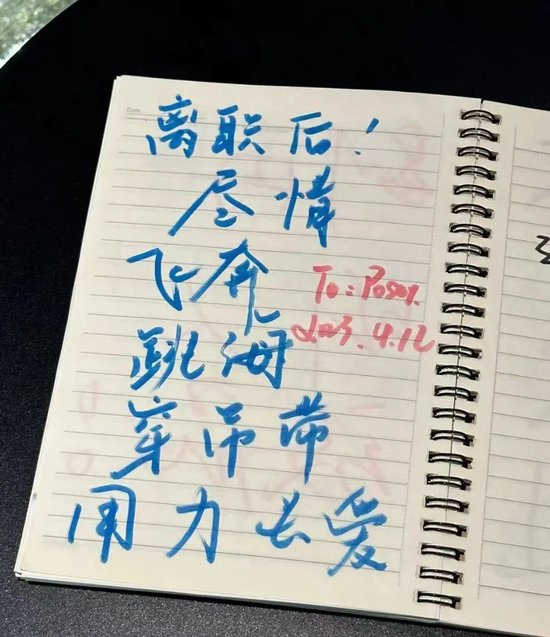 Date
离职后!
尽情
飞奔
跳海
穿吊带
用力去爱
To: Posey.
2023.4.12